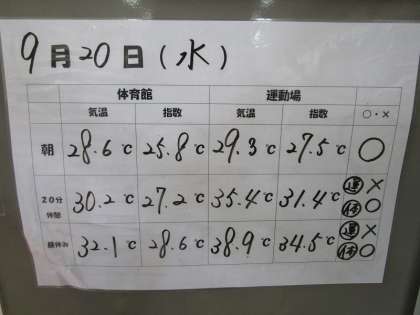 9月20日(水)
体育館 運動場
気温 指数 気温 指数 ○・×
朝 28.6℃ 25.8℃ 29.3℃ 27.5℃ ○
20分休憩 30.2℃ 27.2℃ 35.4℃ 31.4℃ 運× 体○
昼休み 32.1℃ 28.6℃ 38.9℃ 34.5℃ 運× 体○